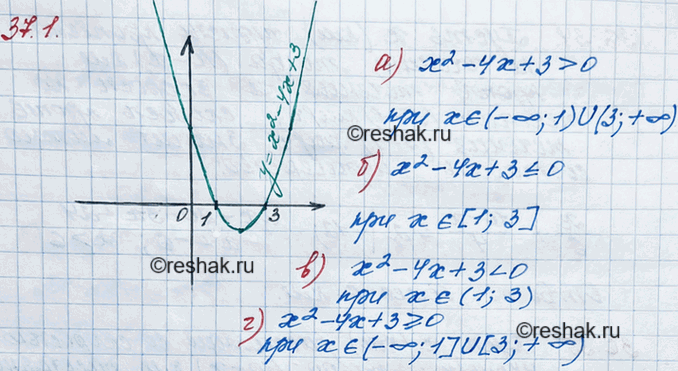 37.1.
y=x²-4x+3
0 1 3
а) x²-4x+3>0
при x∈(-∞; 1)∪(3; +∞)
©reshak.ru
б) x²-4x+3≤0
при x∈[1; 3]
©reshak.ru
в) x²-4x+3<0
при x∈(1; 3)
г) x²-4x+3≥0
©reshak.ru
при x∈(-∞; 1]∪[3; +∞)